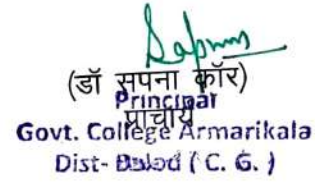 (डॉ सपना कॉर)
Principal
प्राचार्य
Govt. College Armarikala
Dist- Balod ( C. G. )